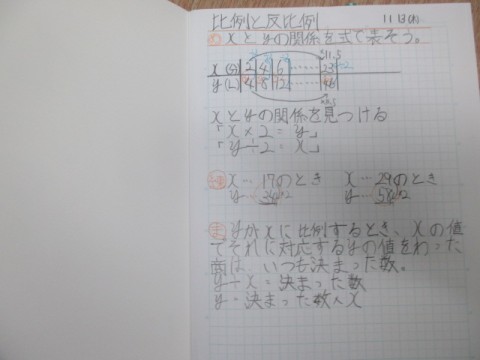 比例と反比例 11/13(木)
め xとyの関係を式で表そう。
x(分) 2 4 6 …… 23
y(L) 4 8 12 …… 46
xとyの関係を見つける
「x×2=y」
「y÷2=x」
x…17のとき x…29のとき
y…34 y…58
ま yがxに比例するとき、xの値
でそれに対応するyの値をわった
商は、いつも決まった数。
y÷x=決まった数
y=決まった数×x